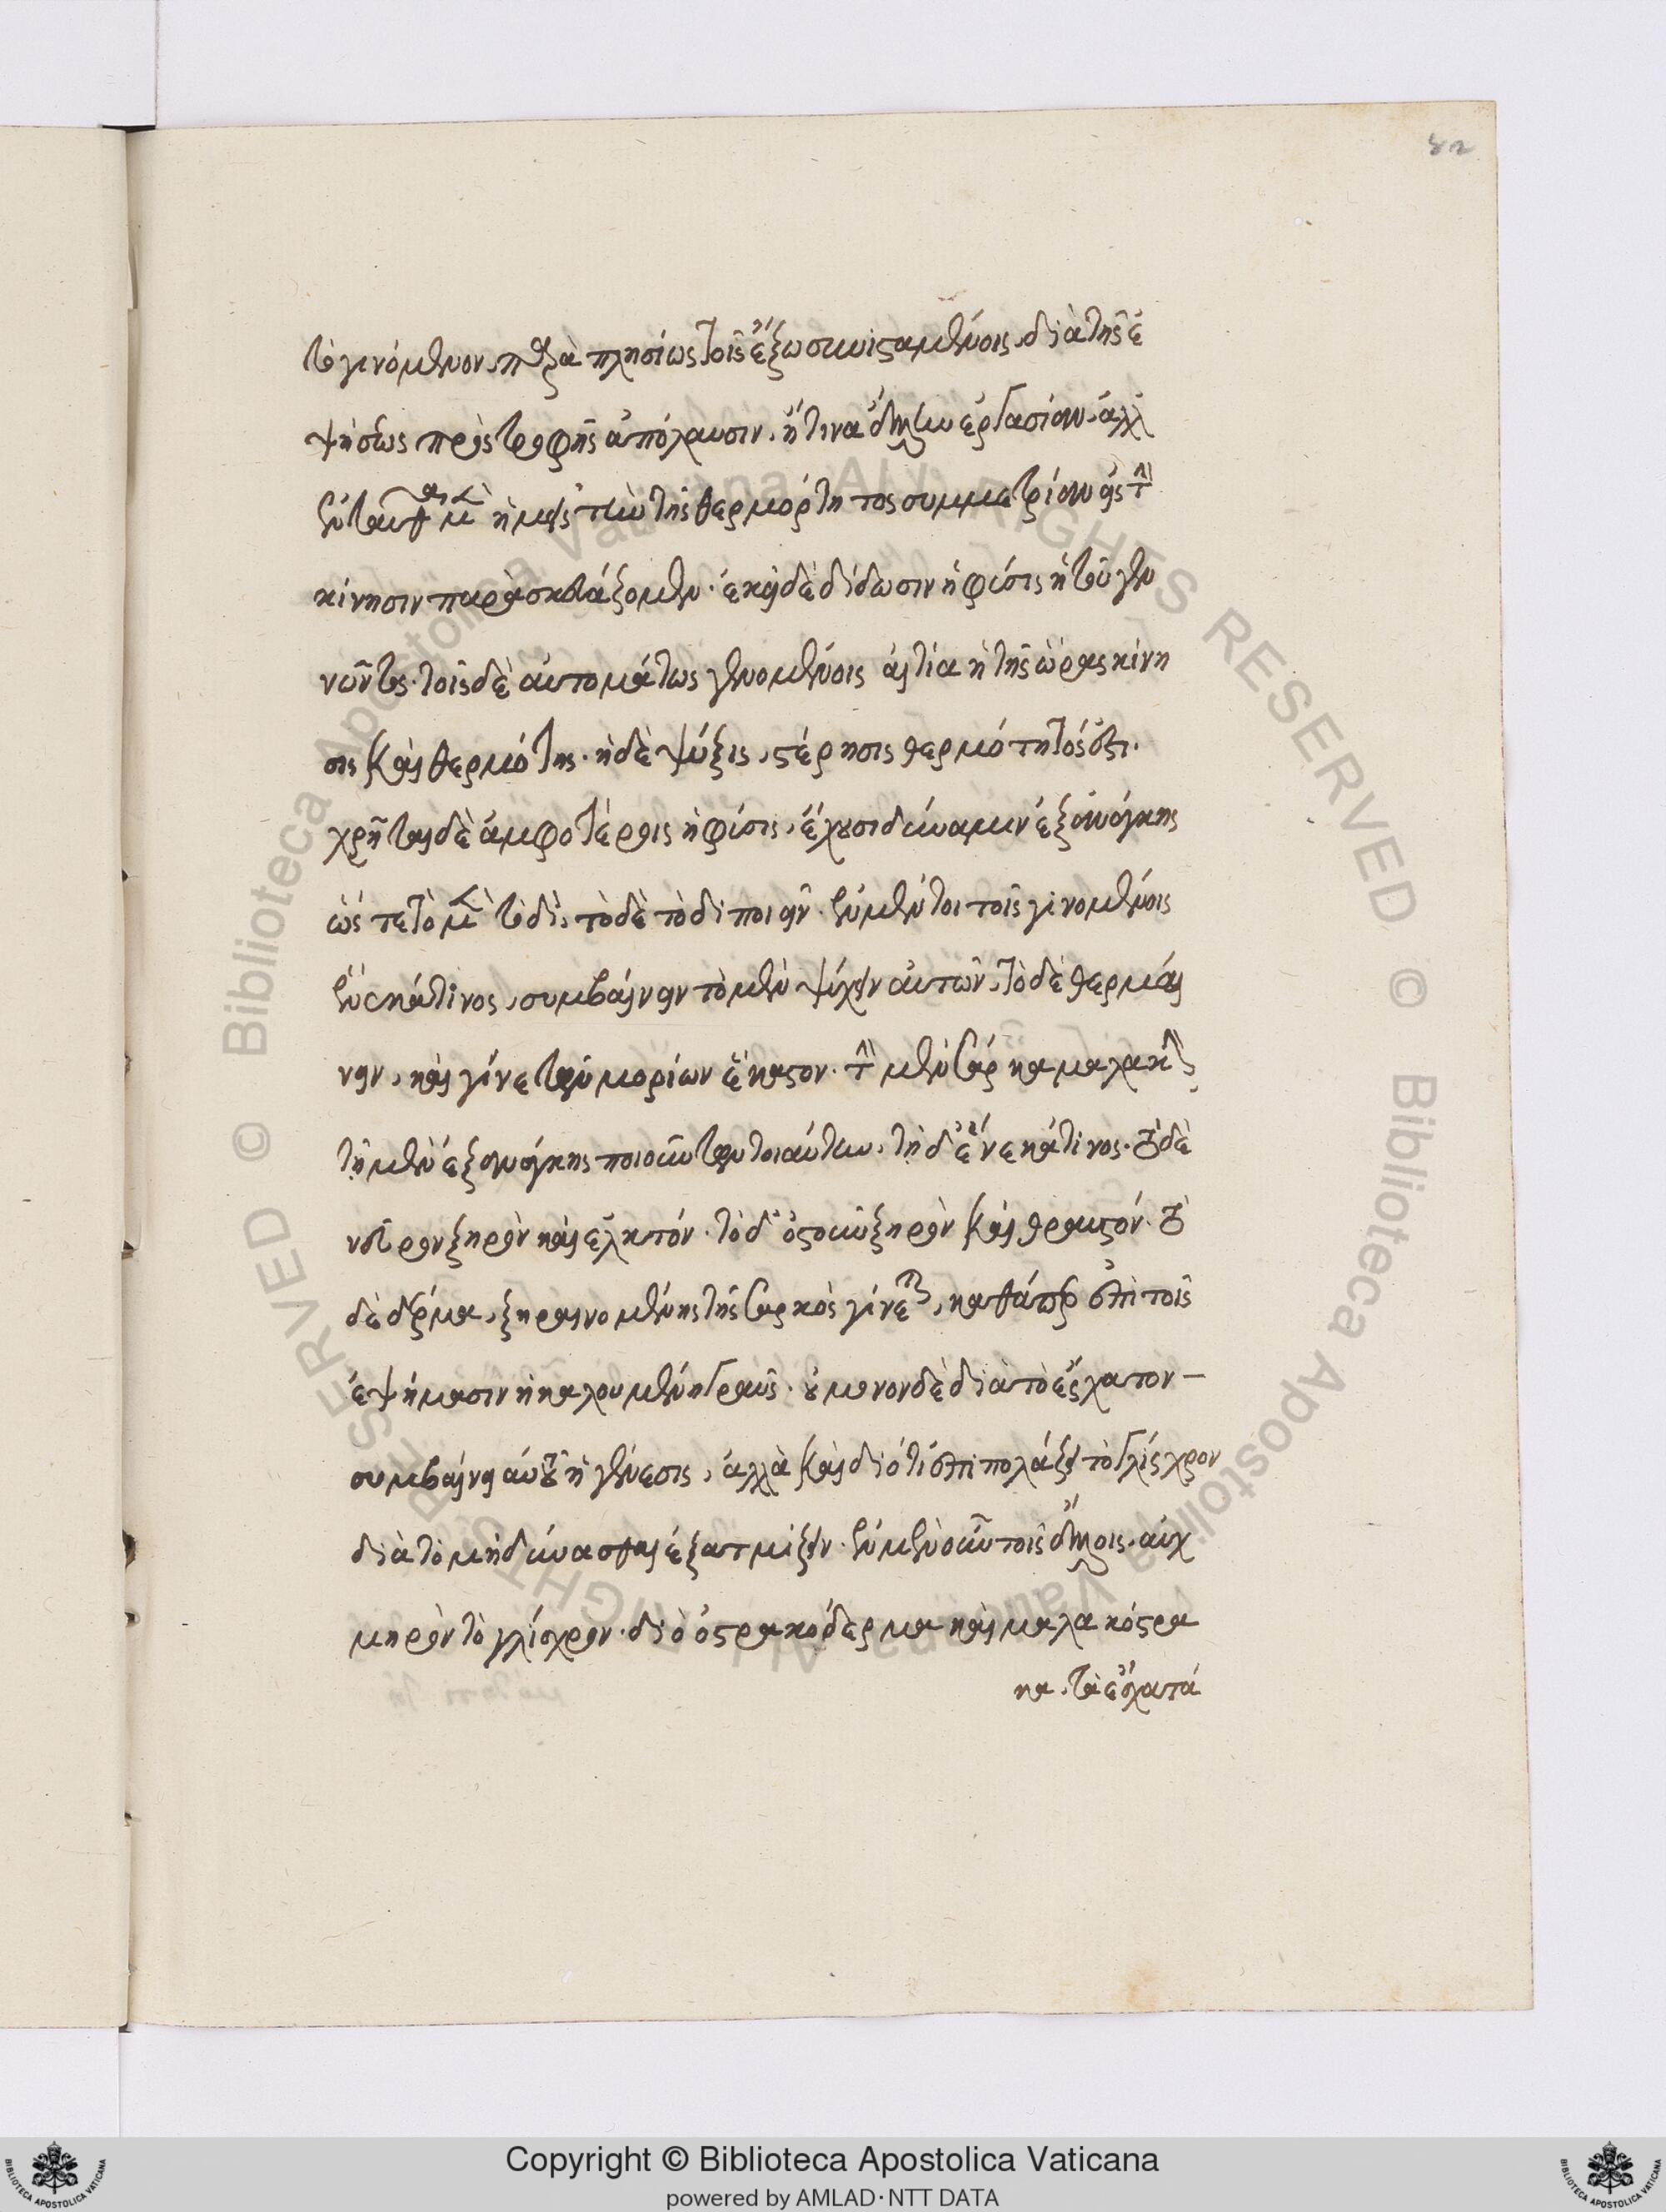 82
τὸ γινόμενον, παραπλησίως τοῖς ἔξω συνισταμένοις, διὰ τῆς ἑ
ψήσεως πρὸς τροφῆς ἀπόλαυσιν, ἤ τινα ἄλλην ἐργασίαν. ἀλλ'
ἐνταῦθα μὲν ἡμεῖς τὴν τῆς θερμότητος συμμετρίαν εἰς τὴν
κίνησιν παρασκευάζομεν. ἐκεῖ δὲ δίδωσιν ἡ φύσις ἡ τοῦ γεν
νῶντος. τοῖς δὲ αὐτομάτως γενομένοις αἰτία ἡ τῆς ὥρας κίνη
σις καὶ θερμότης. ἡ δὲ ψύξις, στέρησις θερμότητός ἐστι.
χρῆται δὲ ἀμφοτέροις ἡ φύσις, ἔχουσι δύναμιν ἐξ ἀνάγκης
ὥστε τὸ μὲν τοδὶ, τὸ δὲ τοδὶ ποιεῖν. ἐν μέντοι τοῖς γινομένοις
ἕνεκά τινος, συμβαίνειν τὸ μὲν ψύχειν αὐτῶν, τὸ δὲ θερμαί
νειν, καὶ γίνεται τῶν μορίων ἕκαστον. τὴν μὲν σάρκα μαλακὴν
τῇ μὲν ἐξ ἀνάγκης ποιοῦνται τοιαύτην, τῇ δ' ἕνεκά τινος. τὸ δὲ
νεῦρον ξηρὸν καὶ ἑλκτόν. τὸ δ' ὀστοῦν ξηρὸν καὶ θραυστόν. τὸ
δὲ δέρμα, ξηραινομένης τῆς σαρκὸς γίνεται, καθάπερ ἐπὶ τοῖς
ἑψήμασιν ἡ καλουμένη γραῦς. οὐ μόνον δὲ διὰ τὸ ἔσχατον –
συμβαίνει αὐτοῦ ἡ γένεσις, ἀλλὰ καὶ διότι ἐπιπολάζει τὸ γλίσχρον
διὰ τὸ μὴ δύνασθαι ἐξατμίζειν. ἐν μὲν οὖν τοῖς ἄλλοις, αὐχ
μηρὸν τὸ γλίσχρον. διὸ ὀστρακόδερμα καὶ μαλακόστρα
κα. τὰ ἔσχατά